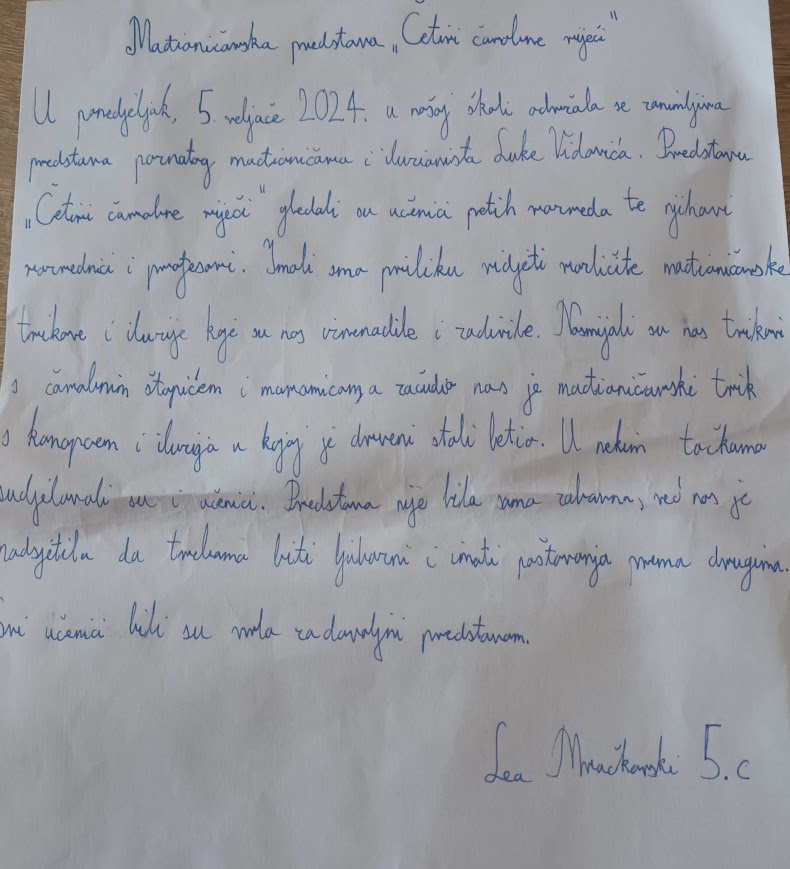 Mađioničarska predstava „Četiri čarobne riječi"
U ponedjeljak, 5. veljače 2024. u našoj školi održala se zanimljiva
predstava poznatog mađioničara i iluzionista Luke Vidovića. Predstavu
„Četiri čarobne riječi" gledali su učenici petih razreda te njihovi
razrednici i profesori. Imali smo priliku vidjeti različite mađioničarske
trikove i iluzije koje su nas iznenadile i zadivile. Nasmijali su nas trikovi
s čarobnim štapićem i maramicom, a začudio nas je mađioničarski trik
s konopcem i iluzija u kojoj je drveni stolić letio. U nekim točkama
sudjelovali su i učenici. Predstava nije bila samo zabavna, već nas je
podsjetila da trebamo biti ljubazni i imati poštovanja prema drugima.
Svi učenici bili su vrlo zadovoljni predstavom.
Lea Mračkovski 5.c